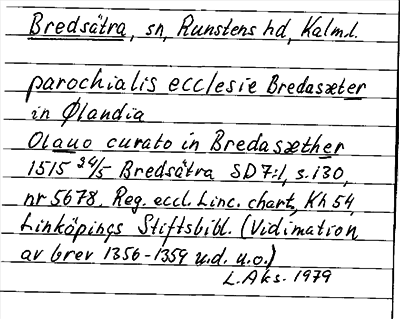 Bredsätra, sn, Runstens hd, Kalm.l.
parochialis ecclesie Bredasæter
in Ølandia
Olauo curato in Bredasæther
1515 24/5 Bredsätra SD 7:1, s.130,
nr 5678. Reg. eccl. Linc. chart, Kh 54,
Linköpings Stiftsbibl. (Vidimation
av brev 1356-1359 u.d. u.o.)
L.Aks. 1979